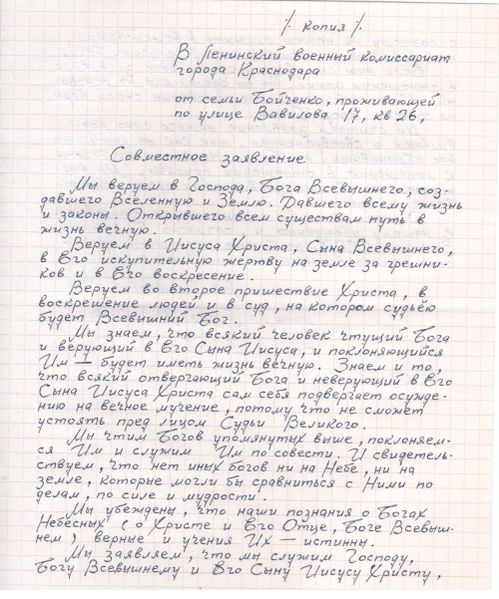 /. копия /.
В Ленинский военный комиссариат
города Краснодара
от семьи Бойченко, проживающей
по улице Вавилова 17, кв 26,
Совместное заявление
Мы веруем в Господа, Бога Всевышнего, соз-
давшего Вселенную и Землю. Давшего всему жизнь
и законы. Открывшего всем существам путь в
жизнь вечную.
Веруем в Иисуса Христа, Сына Всевышнего,
в Его искупительную жертву на земле за грешни-
ков и в Его воскресение.
Веруем во второе пришествие Христа, в
воскрешение людей и в суд, на котором судьёю
будет Всевышний Бог.
Мы знаем, что всякий человек чтущий Бога
и верующий в Его Сына Иисуса, и поклоняющийся
Им — будет иметь жизнь вечную. Знаем и то,
что всякий отвергающий Бога и неверующий в Его
Сына Иисуса Христа сам себя подвергает осужде-
нию на вечное мучение, потому что не сможет
устоять пред лицом Судьи Великого.
Мы чтим Богов упомянутых выше, поклоняем-
ся Им и служим Им по совести. И свидетель-
ствуем, что нет иных богов ни на Небе, ни на
земле, которые могли бы сравниться с Ними по
делам, по силе и мудрости.
Мы убеждены, что наши познания о Богах
Небесных (о Христе и Его Отце, Боге Всевыш-
нем) верные и учения Их — истинны.
Мы заявляем, что мы служим Господу,
Богу Всевышнему и Его Сыну Иисусу Христу,